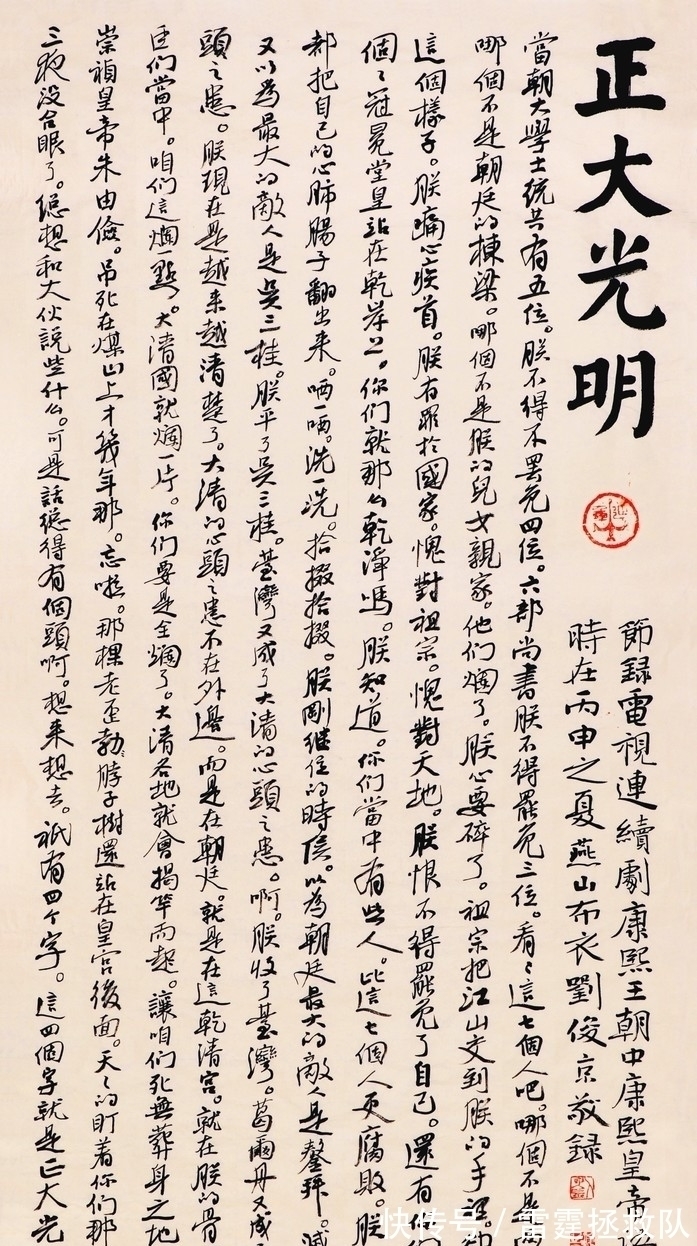 正大光明
節録電視連續劇康熙王朝中康熙皇帝
時在丙申之夏燕山布衣劉俊京敬録
當朝大學士統共有五位。朕不得不罷免四位。六部尚書朕不得罷免三位。看々這七個人吧。哪個不是
哪個不是朝廷的棟梁。哪個不是朕的兒女親家。他們爛了。朕心要碎了。祖宗把江山交到朕的手裡。卻
這個樣子。朕痛心疾首。朕有罪於國家。愧對祖宗。愧對天地。朕恨不得罷免了自己。還有你們
個々冠冕堂皇站在乾岸上。你們就那么乾淨嗎。朕知道。你們當中有些人。比這七個人更腐敗。朕
都把自己的心肺腸子翻出来。晒一晒。洗一洗。拾掇拾掇。朕剛继位的時候。以為朝廷最大的敵人是鳌拜。滅
又以為最大的敵人是吴三桂。朕平了吴三桂。臺灣又成了大清的心頭之患。啊。朕收了臺灣。葛爾丹又成
頭之患。朕現在是越来越清楚了。大清的心頭之患不在外邊。而是在朝廷。就是在這乾清宫。就在朕的骨
臣們當中。咱們這爛一點。大清國就爛一片。你們要是全爛了。大清各地就會揭竿而起。讓咱們死無葬身之地
崇禎皇帝朱由儉。吊死在煤山上才幾年那。忘啦。那棵老歪脖子樹還站在皇宫後面。天々的盯着你們那
三夜没合眼了。總想和大伙說些什么。可是話總得有個頭啊。想来想去。祇有四个字。這四個字就是正大光
快传号／雷霆拯救队